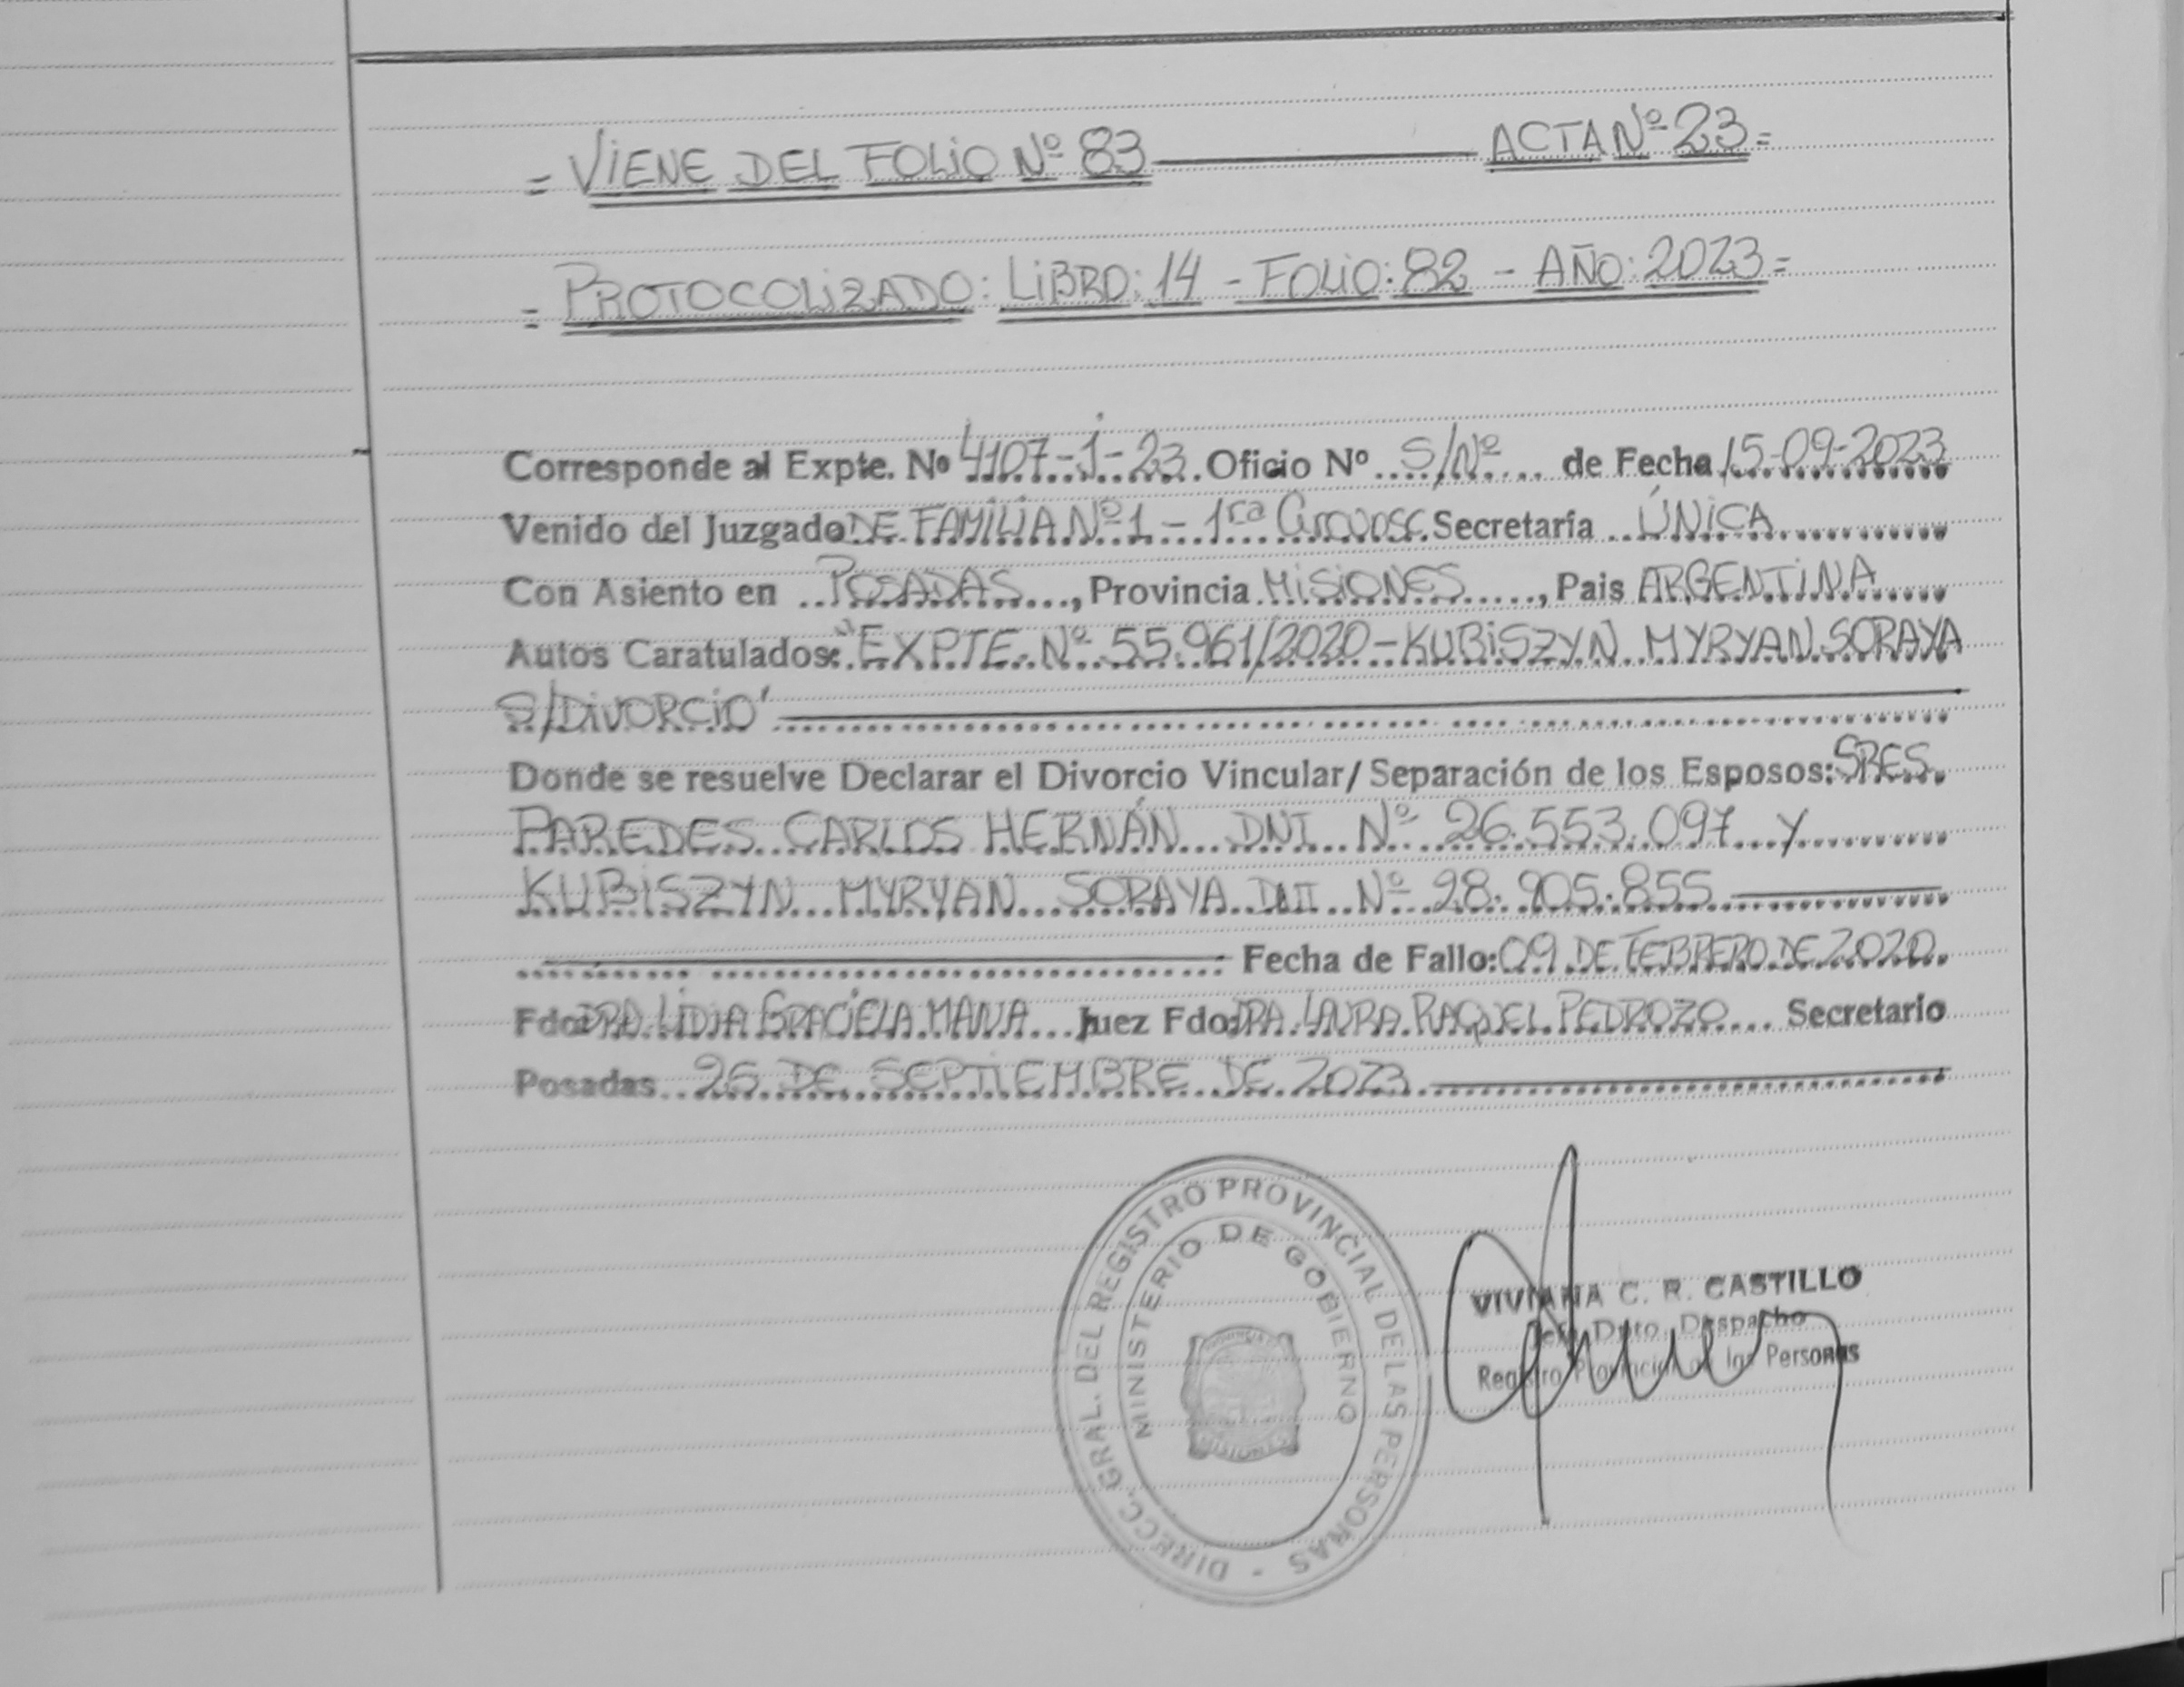 = VIENE DEL FOLIO Nº 83 ACTA Nº 23 =
= PROTOCOLIZADO: LIBRO: 14 - FOLIO: 82 - AÑO: 2023 =
Corresponde al Expte. Nº 4107-J-23. Oficio Nº S/Nº de Fecha 15-09-2023
Venido del Juzgado DE FAMILIA Nº 1 - 1ra Circunsc. Secretaría ÚNICA
Con Asiento en POSADAS, Provincia MISIONES, Pais ARGENTINA
Autos Caratulados: "EXPTE. Nº 55.961/2020 - KUBISZYN MYRYAN SORAYA
S/DIVORCIO"
Donde se resuelve Declarar el Divorcio Vincular/Separación de los Esposos: SRES.
PAREDES CARLOS HERNÁN DNI Nº 26.553.097 Y
KUBISZYN MYRYAN SORAYA DNI Nº 28.905.855
Fecha de Fallo: 09 DE FEBRERO DE 2020.
Fdo: DRA. LIDIA GRACIELA MANA Juez Fdo: DRA. LAURA RAQUEL PEDROZO Secretario
Posadas 26 DE SEPTIEMBRE DE 2023
DIRECC. GRAL. DEL REGISTRO PROVINCIAL DE LAS PERSONAS -
MINISTERIO DE GOBIERNO
MISIONES
VIVIANA C. R. CASTILLO
Jefa Dpto. Despacho
Registro Provincial de las Personas